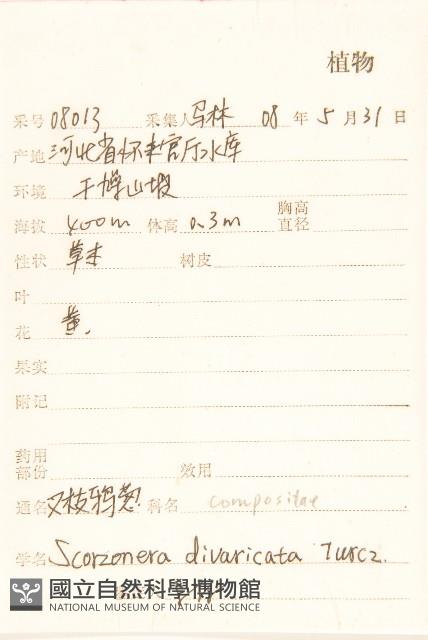 植物
采号 08013 采集人 马林 08 年 5 月 31 日
产地 河北省怀来官厅水库
环境 干旱山坡
海拔 400m 体高 0.3m 胸高直径
性状 草本 树皮
叶
花 黄.
果实
附记
药用部份 效用
通名 叉枝鸦葱 科名 compositae
学名 Scorzonera divaricata Turcz.
國立自然科學博物館
NATIONAL MUSEUM OF NATURAL SCIENCE